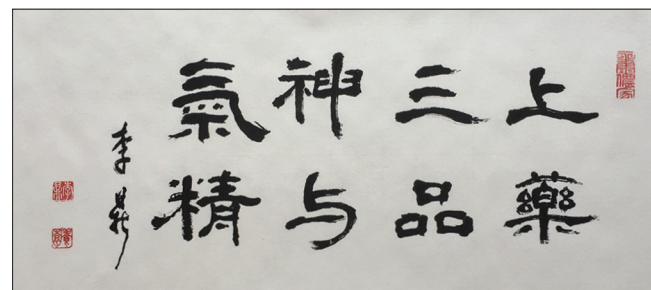 上藥
三品
神与
氣精
李鼎